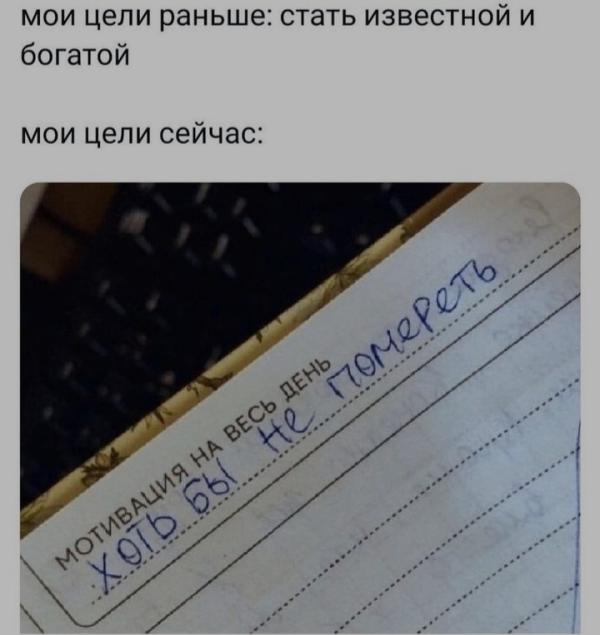 мои цели раньше: стать известной и
богатой
мои цели сейчас:
МОТИВАЦИЯ НА ВЕСЬ ДЕНЬ
ХОТЬ БЫ НЕ ПОМЕРЕТЬ